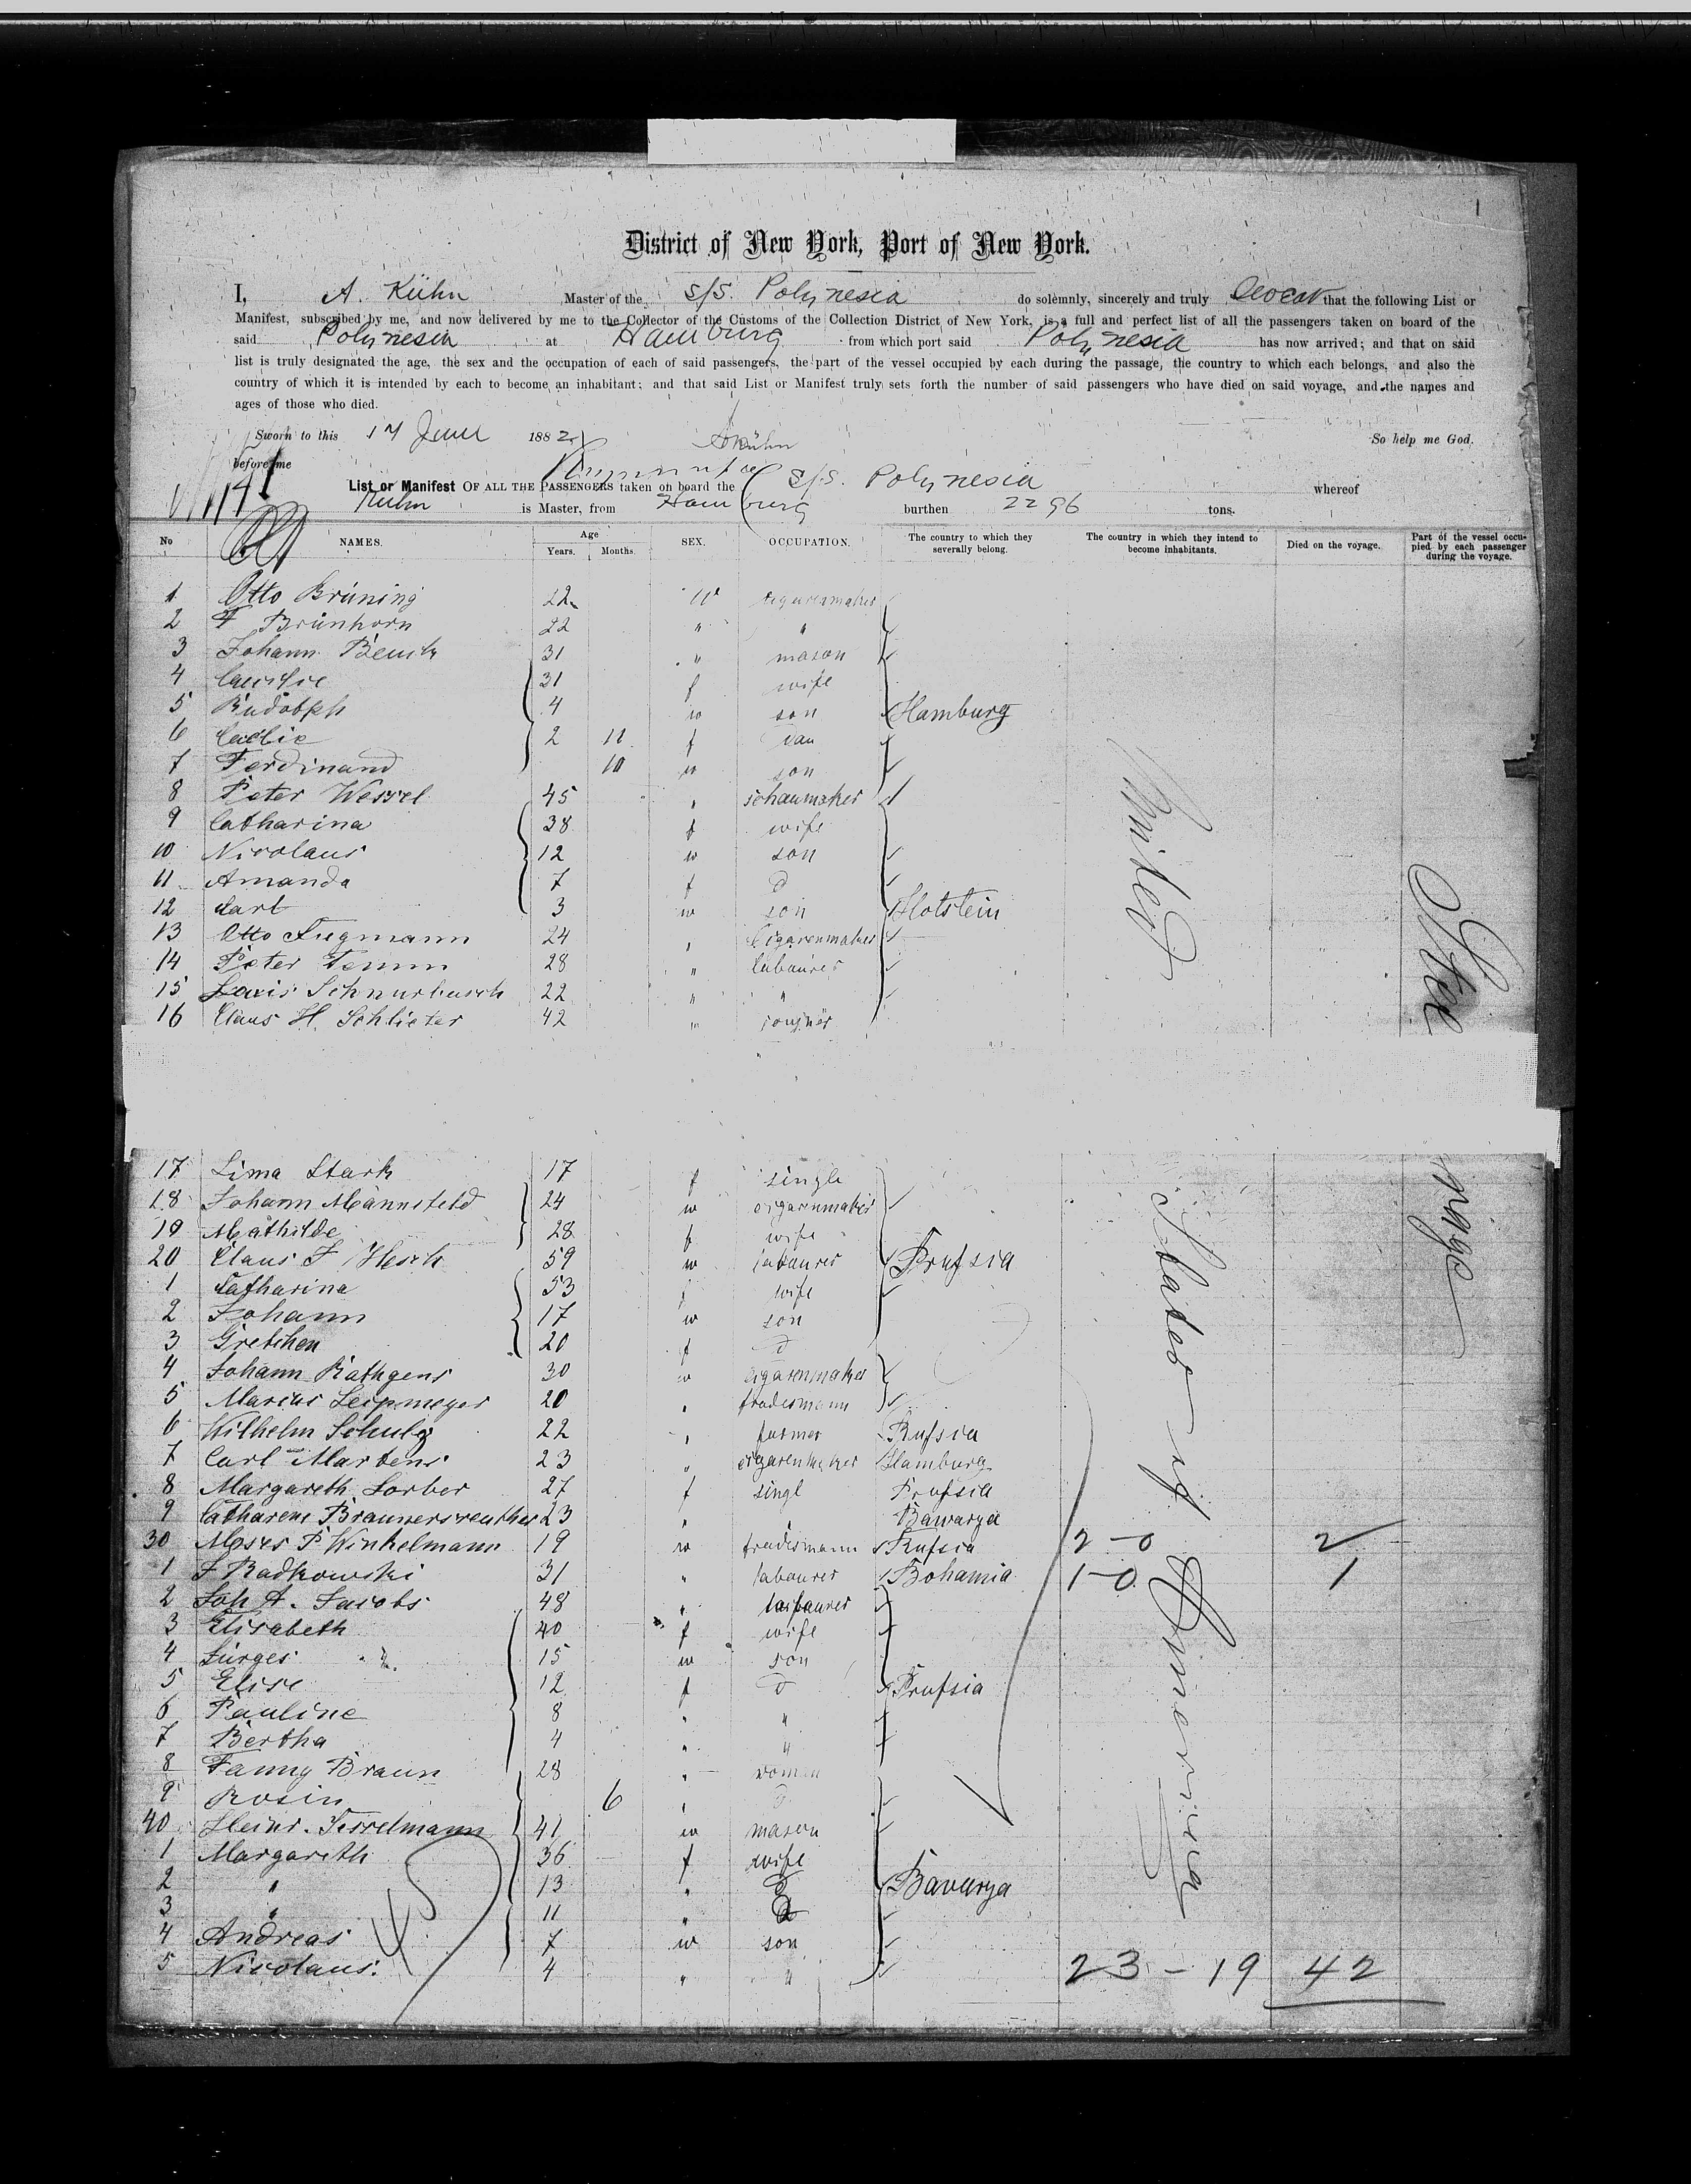 1
District of New York, Port of New York.
I, A. Kühn Master of the S/S. Polynesia do solemnly, sincerely and truly that the following List or
Manifest, subscribed by me, and now delivered by me to the Collector of the Customs of the Collection District of New York, is a full and perfect list of all the passengers taken on board of the
said Polynesia at Hamburg from which port said Polynesia has now arrived; and that on said
list is truly designated the age, the sex and the occupation of each of said passengers, the part of the vessel occupied by each during the passage, the country to which each belongs, and also the
country of which it is intended by each to become an inhabitant; and that said List or Manifest truly sets forth the number of said passengers who have died on said voyage, and the names and
ages of those who died.
Sworn to this 17 June 1882 AKühn So help me God.
before me
List or Manifest OF ALL THE PASSENGERS taken on board the S/S. Polynesia whereof
Kühn is Master, from Hamburg burthen 2296 tons.
No NAMES. Age Years. Months. SEX. OCCUPATION. The country to which they severally belong. The country in which they intend to become inhabitants. Died on the voyage. Part of the vessel occupied by each passenger during the voyage.
1 Otto Brüning 22 m cigarenmaker
2 F Brünhorn 22 " "
3 Johann 31 " mason
4 31 f wife
5 Rudolph 4 m son Hamburg
6 2 11 f dau
7 Ferdinand 10 m son
8 Peter Wessel 45 " schoumaker
9 Catharina 38 f wife
10 Nicolaus 12 m son
11 Amanda 7 f d
12 Carl 3 m son Holstein
13 Otto 24 " Cigarenmaker
14 Peter Tamm 28 " labourer
15 Louis Schnurbusch 22 " "
16 Claus H. Schlieter 42 "
17 Lima Stark 17 f single
18 Johann Mannsfeld 24 m cigarenmaker
19 Mathilde 28 f wife
20 Claus F Hesch 59 m labourer Prussia
1 Catharina 53 f wife
2 Johann 17 m son
3 Gretchen 20 f d
4 Johann Rathgens 30 m cigarenmaker
5 Marcus Leipmeyer 20 " tradesmann
6 Wilhelm Schulz 22 " farmer Russia
7 Carl Martens 23 " cigarenmaker Hamburg
8 Margareth Lorber 27 f singl Prussia
9 Catharene Braunersreuther 23 " " Bawarya
30 Moses P Winkelmann 19 m tradismann Russia 2-0 2
1 F Radkowski 31 " labourer Bohamia 1-0 1
2 Joh A. Jacobs 48 " labourer
3 Elisabeth 40 f wife
4 Jürges " 15 m son
5 Elise 12 f d Prussia
6 Pauline 8 " "
7 Bertha 4 " "
8 Fanny Braun 28 " woman
9 Rosin 6 " d
40 Heinr. Tesselmann 41 m mason
1 Margareth 36 f wife
2 " 13 " d Bavarya
3 " 11 " d
4 Andreas 7 m son
5 Nicolaus. 4 " " 23 - 19 42
United States of America
Steerage